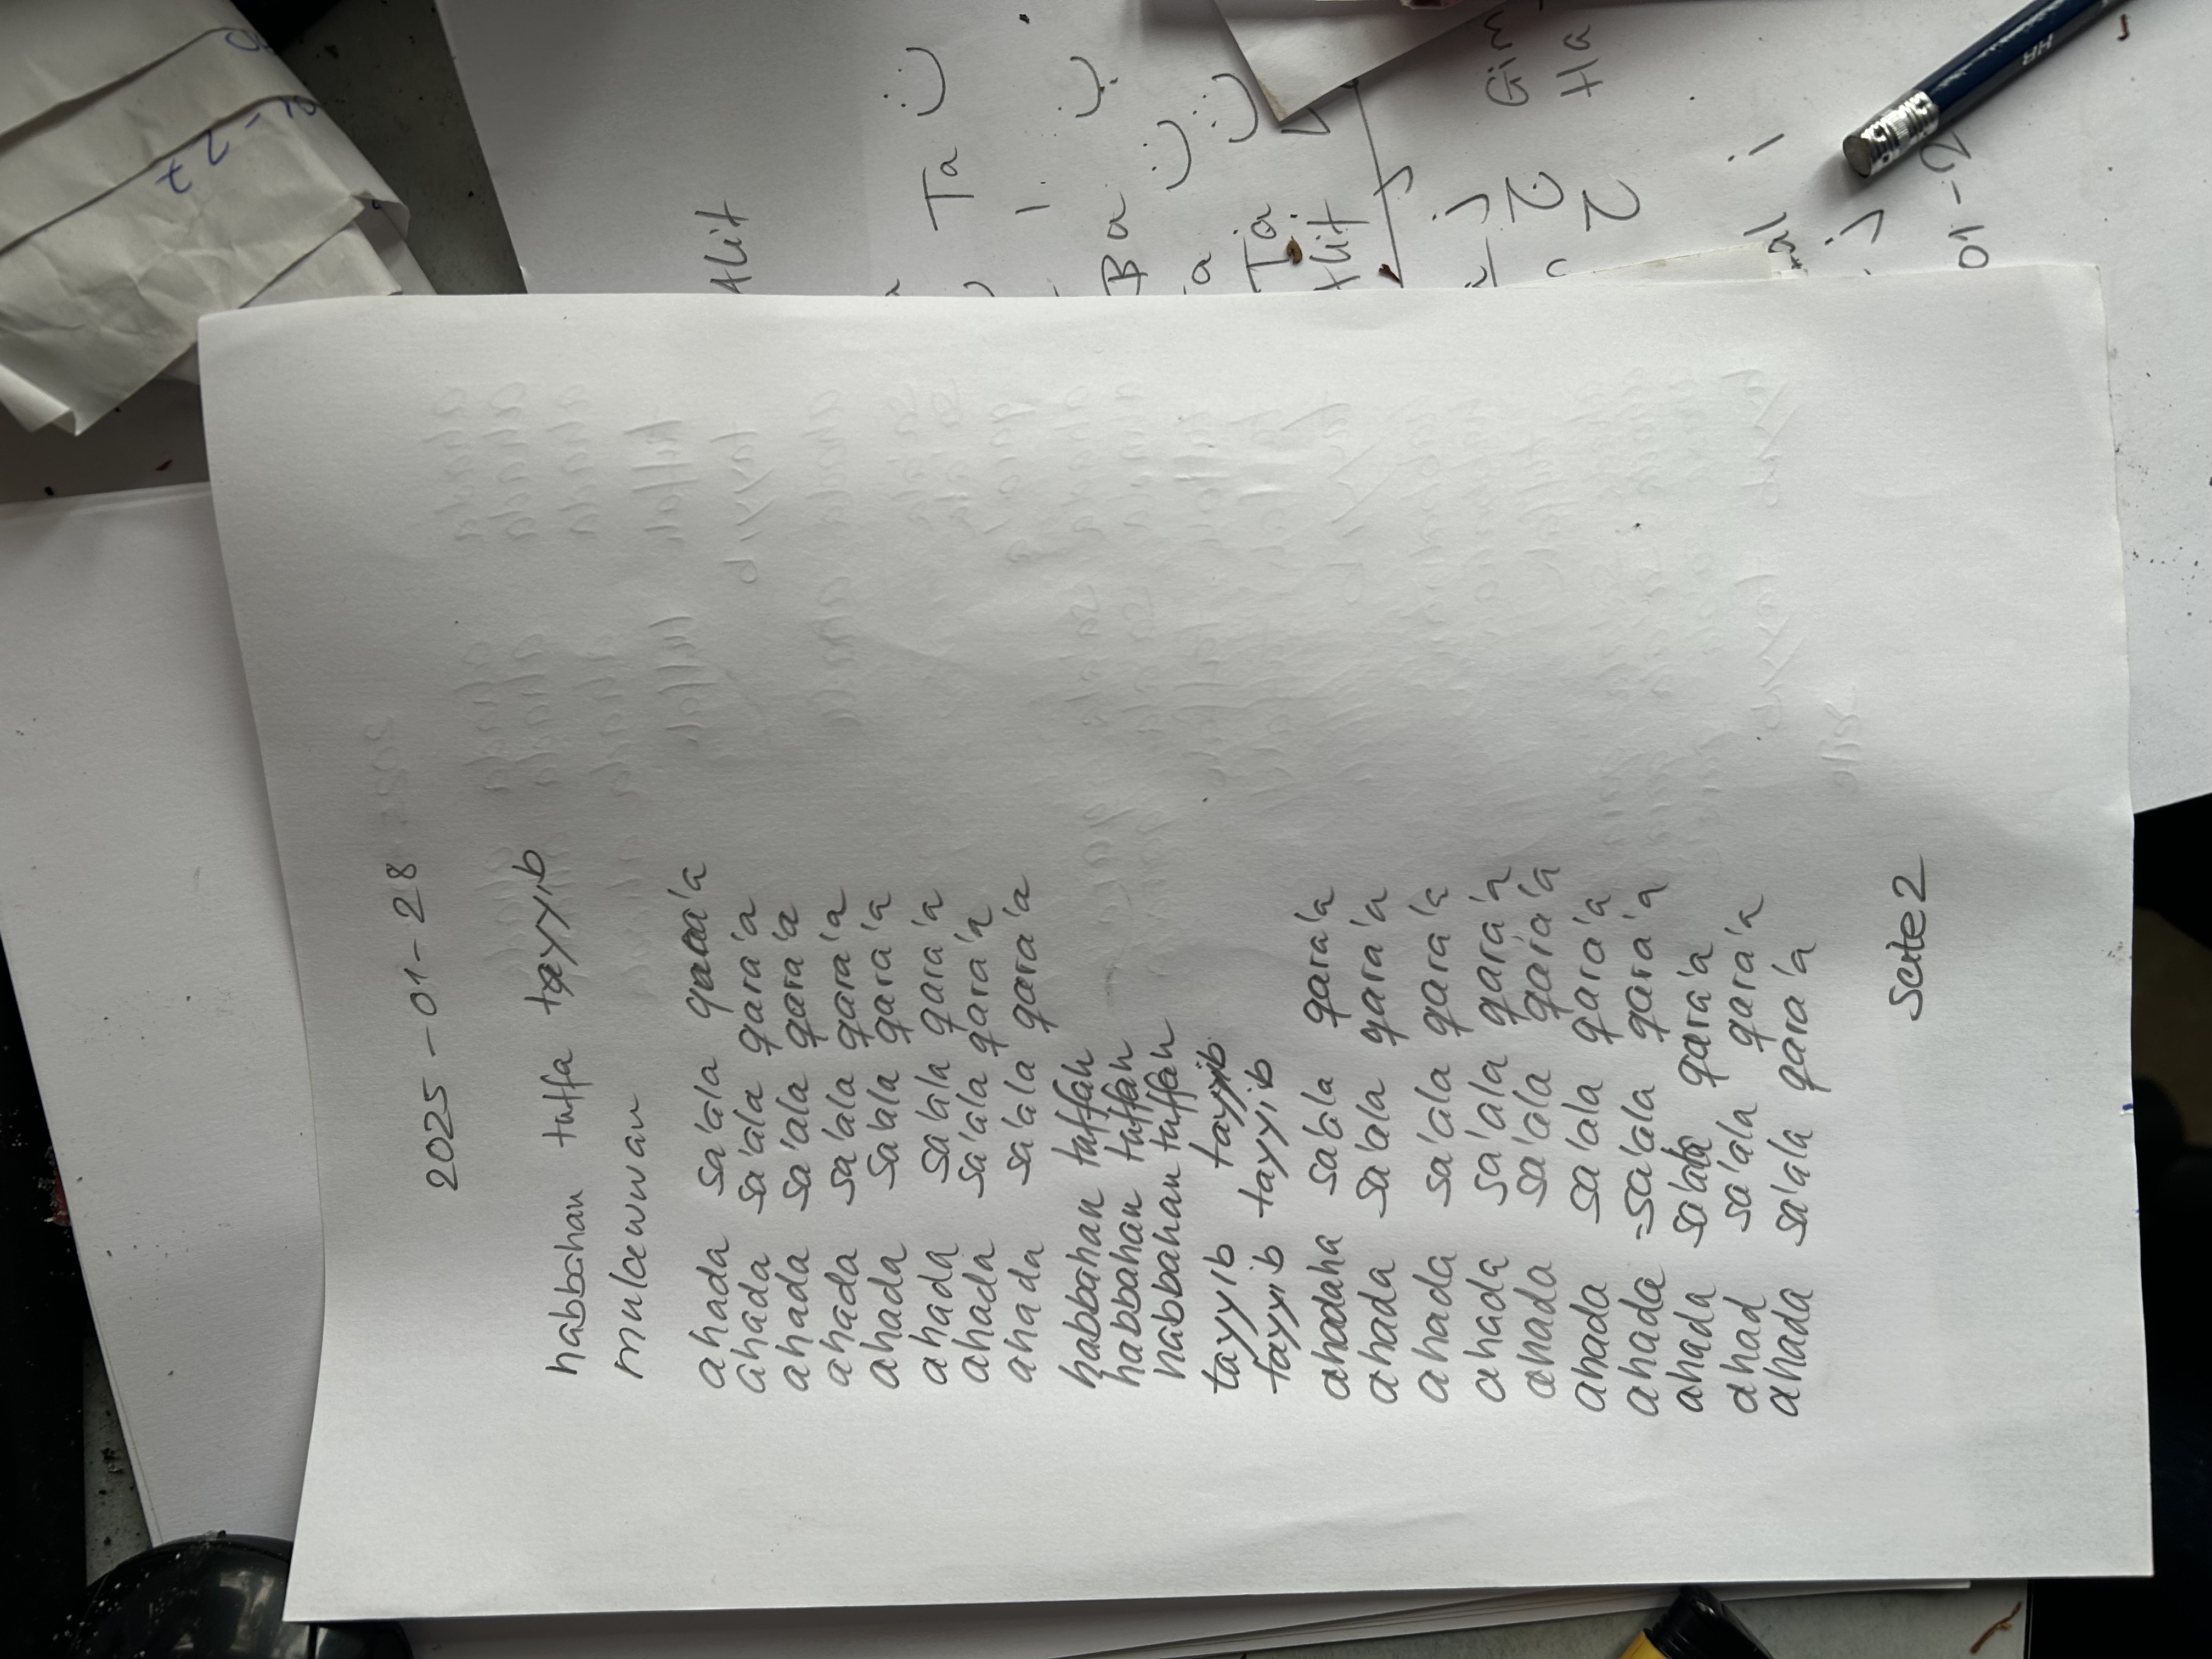 2025-01-28
habbahan tuffa tayyib
mulawwan
ahada sa'ala qara'a
ahada sa'ala qara'a
ahada sa'ala qara'a
ahada sa'ala qara'a
ahada sa'ala qara'a
ahada sa'ala qara'a
ahada sa'ala qara'a
ahada sa'ala qara'a
habbahan tuffah
habbahan tuffah
habbahan tuffah
tayyib tayyib
tayyib tayyib
ahadaha sa'ala qara'a
ahada sa'ala qara'a
ahada sa'ala qara'a
ahada sa'ala qara'a
ahada sa'ala qara'a
ahada sa'ala qara'a
ahada sa'ala qara'a
ahada sa'ala qara'a
ahad sa'ala qara'a
ahada sa'ala qara'a
Seite 2
Alit
Ta
Ba
Ta
Ha
HB